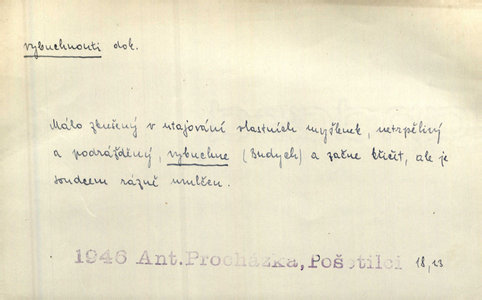 vybuchnouti dok.
Málo zkušený v utajování vlastních myšlenek, netrpělivý
a podrážděný, vybuchne (Dudych) a začne křičet, ale je
soudcem rázně umlčen.
1946 Ant.Procházka,Pošetilci 18,23